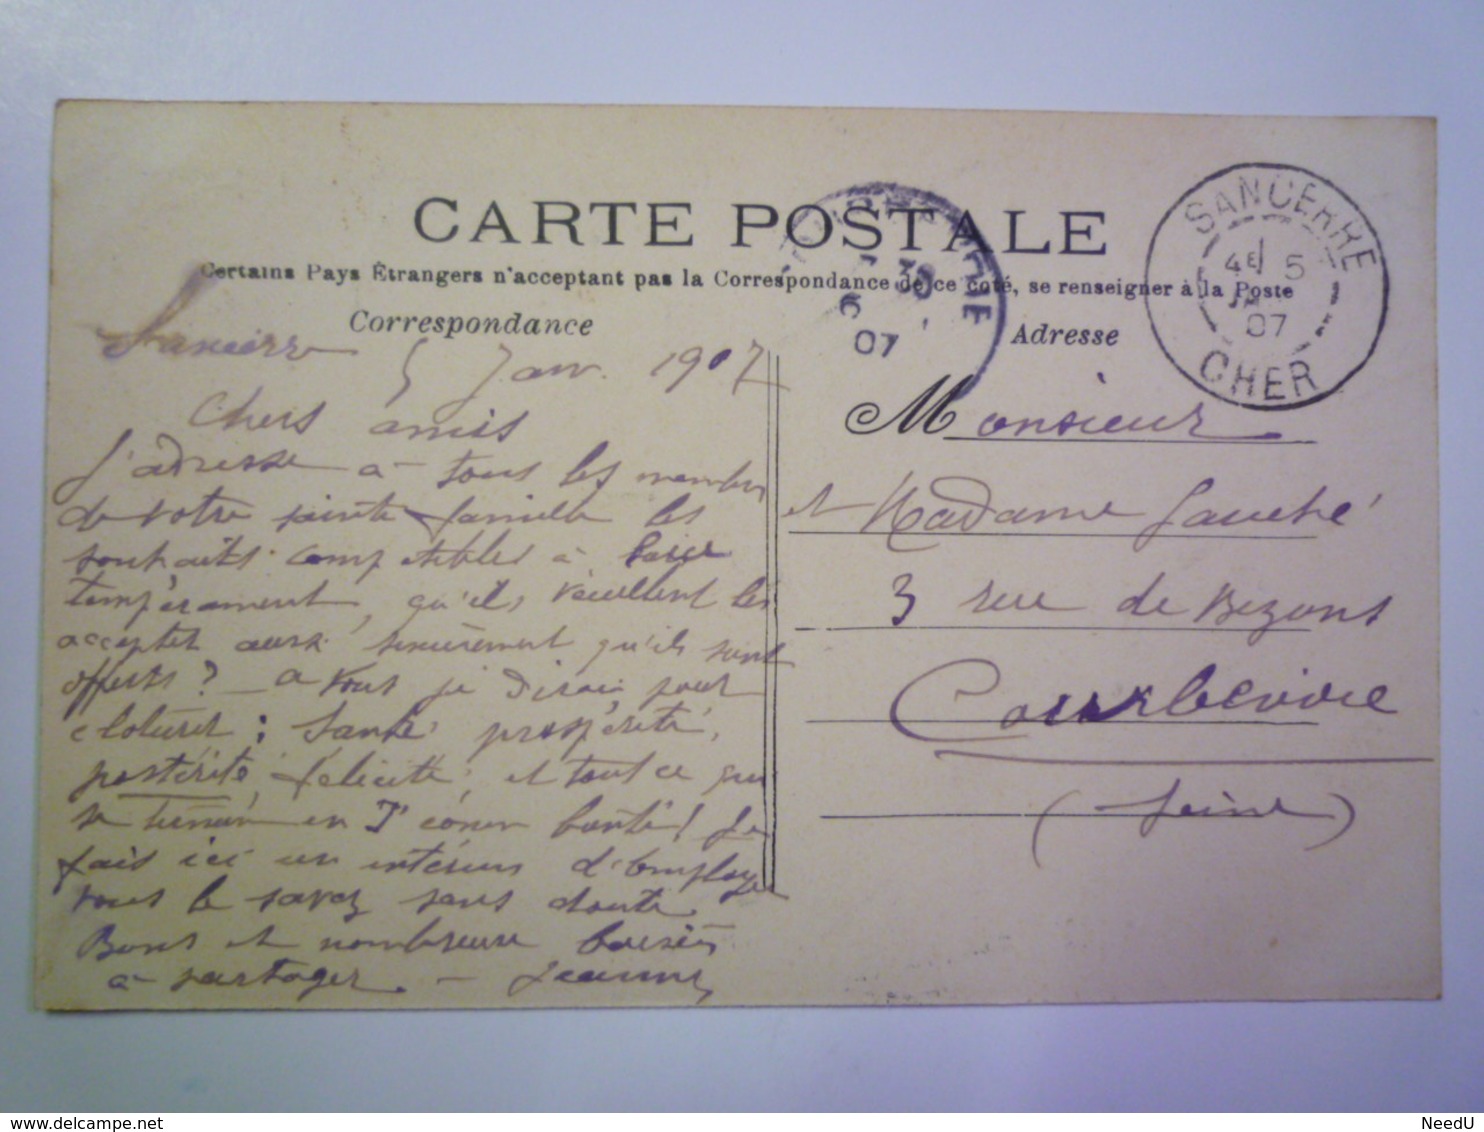 CARTE POSTALE
Certains Pays Étrangers n'acceptent pas la Correspondance de ce coté, se renseigner à la Poste
Correspondance
Adresse
SANCERRE
4E 5
JA
07
CHER
30
07
Sancerre 5 Janv. 1907
Chers amis
J'adresse à tous les membres
de votre sainte famille les
souhaits compatibles à
tempérament, qu'ils veuillent les
accepter aussi sincèrement qu'ils sont
offerts ? - à vous je dirai pour
cloturer : Santé, prospérité,
postérité, félicité, et tout ce qui
se termine en
fais ici un intérim d'employée
vous le savez sans doute.
Bons et nombreux baisers
à partager. - Jeanne
Monsieur
et Madame Gauché
3 rue de Bezons
Courbevoie
(Seine)
NeedU